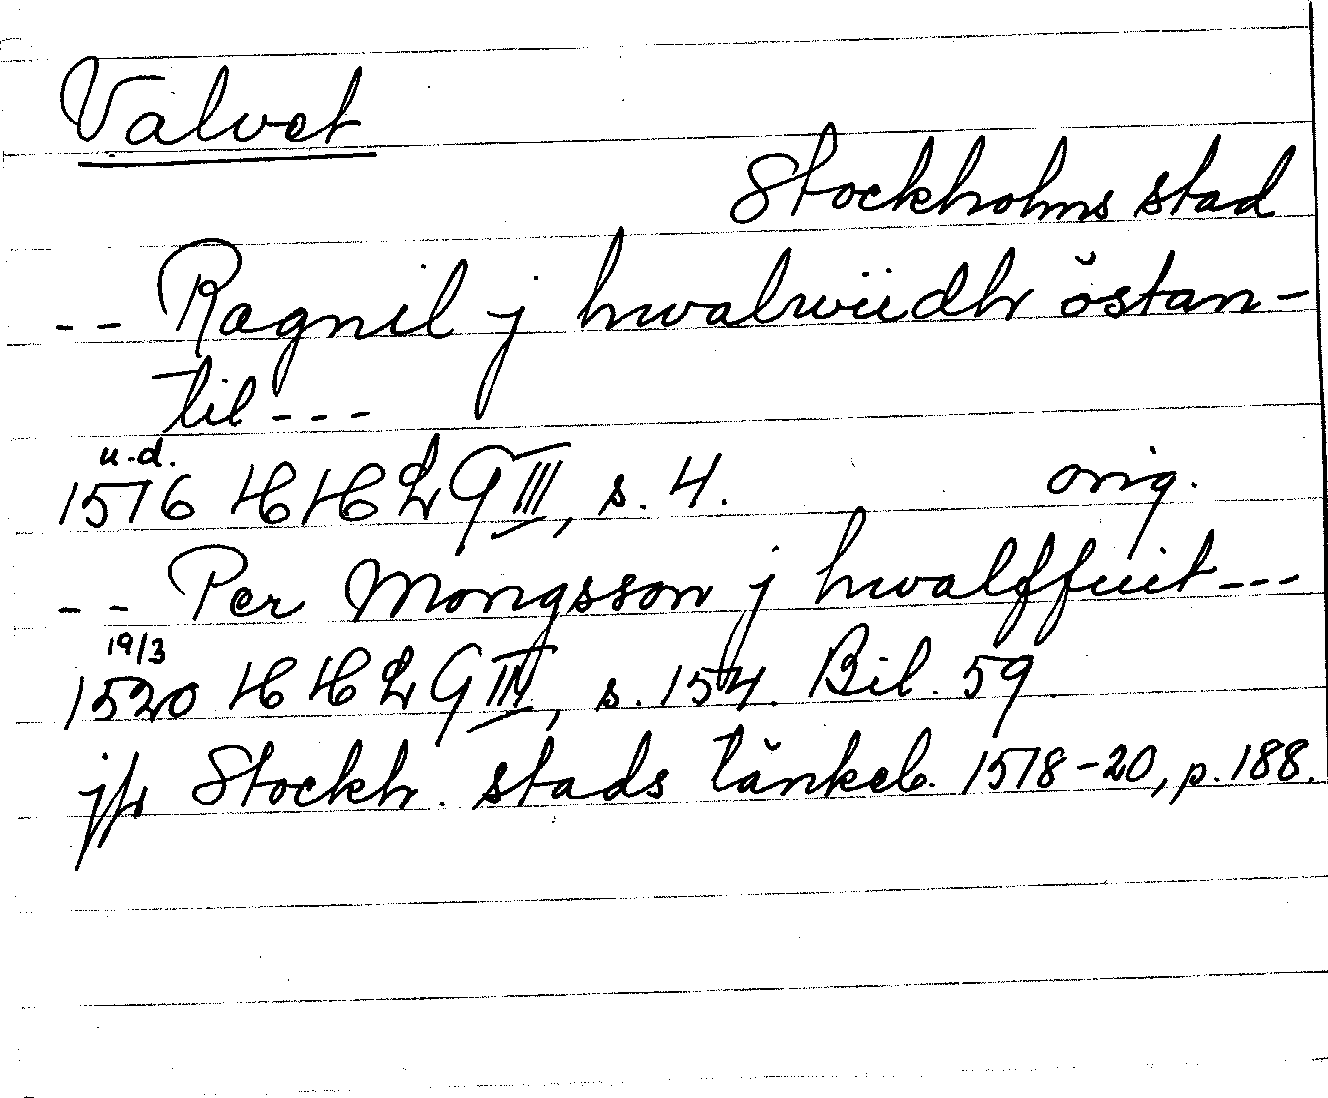 Valvet
Stockholms stad
-- Ragnil j hwalwiidh östan-
til---
u.d.
1516 HHLG III, s. 4. orig.
-- Per Mongsson j hwalffuit---
19/3
1520 HHLG IV, s. 154. Bil. 59
jfr Stockh. stads tänkeb. 1518-20, p. 188.